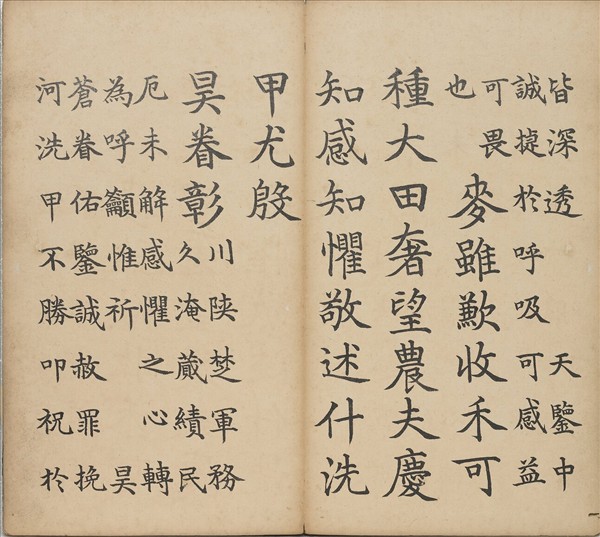 皆深透 天鑒中
誠捷於呼吸可感益
可畏
也
麥雖歉收禾可
種大田奢望農夫慶
知感知懼敬述什洗
甲尤殷
昊眷彰
川陝楚軍務
久淹蕆績民
厄未解感懼之心轉
為呼籲惟祈 昊
蒼眷佑鑒誠赦罪挽
河洗甲不勝叩祝於